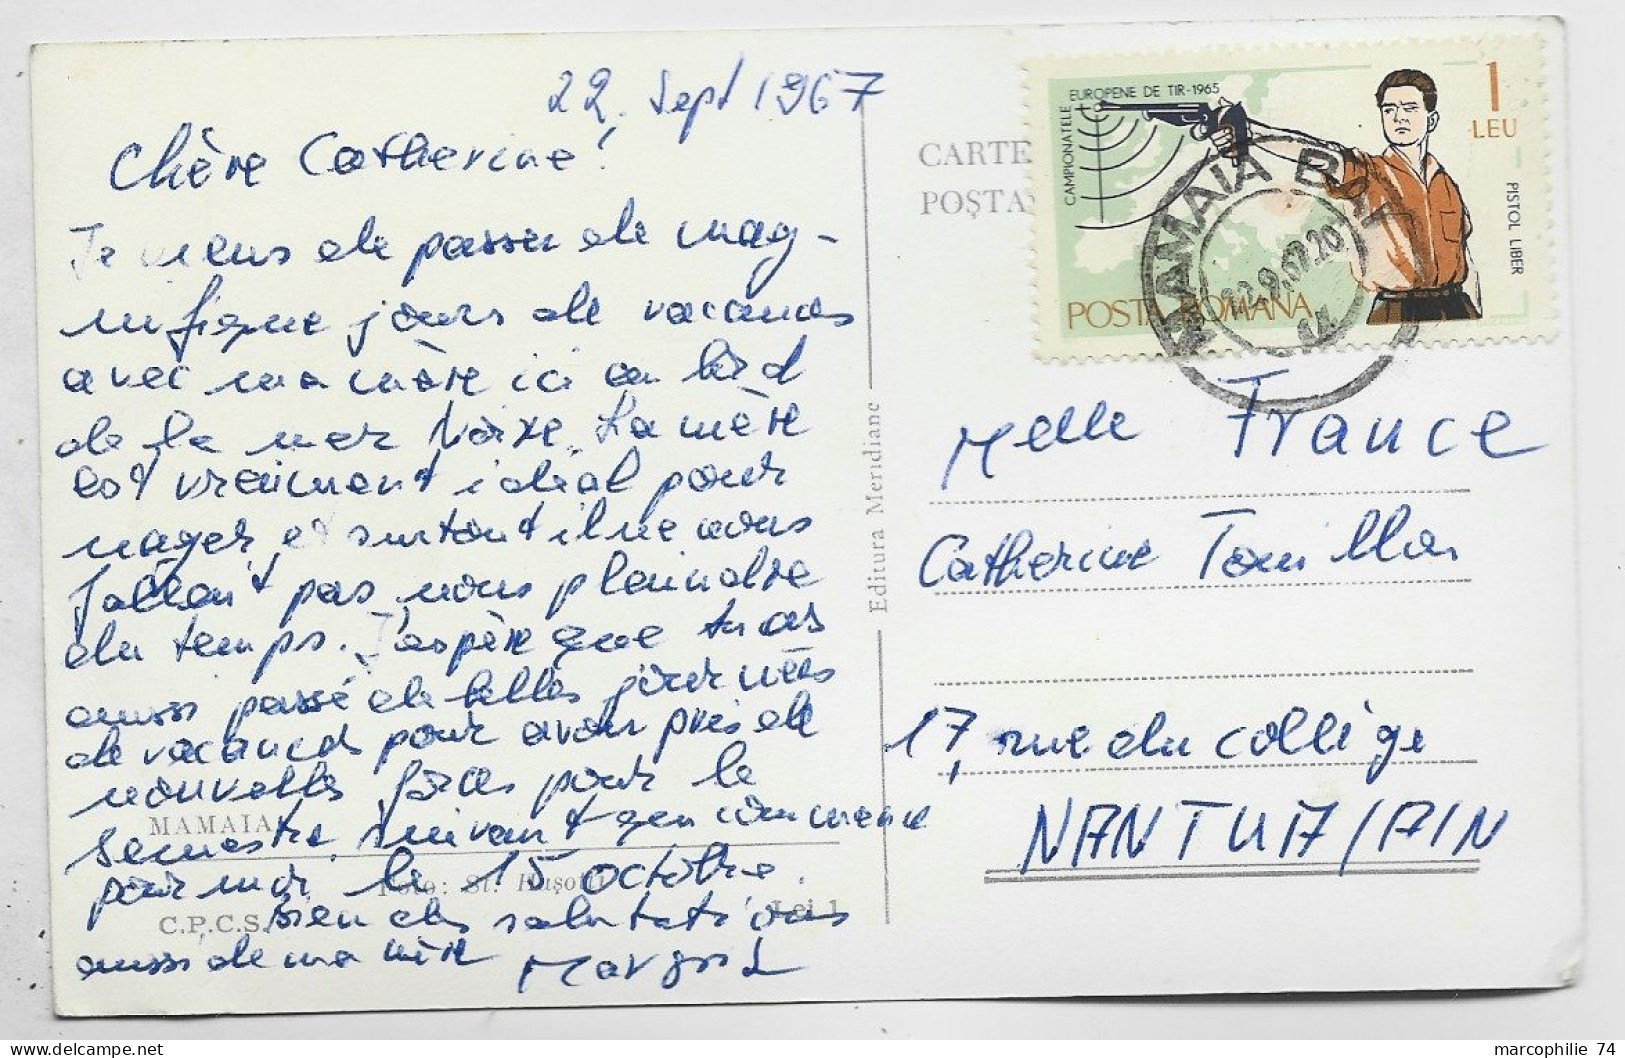 22. Sept 1967
Chère Catherine!
Je viens de passer de mag-
nifique jours de vacances
avec ma mère ici au bord
de la mer Noire. La mère
est vraiment idéal pour
nager, et surtout il ne nous
fallait pas nous plaindre
du temps. J'espère que tu as
aussi passé de belles journées
de vacances pour avoir pris de
nouvelles forces pour le
semestre suivant qui commence
pour moi le 15 octobre.
Bien des salutations
aussi de ma mère Margrit
MAMAIA
Foto: St. Hușotti
C.P.C.S.
Lei 1
Editura Meridiane
CARTE
POȘTA
CAMPIONATELE EUROPENE DE TIR-1965
1
LEU
PISTOL LIBER
POSTA ROMANA
MAMAIA BAI
Melle France
Catherine
17, rue du collège
NANTUA/AIN
marcophilie 74